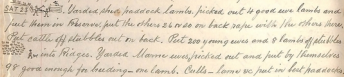 SAT 25 Yarded shed paddock lambs, picked out 4 good ewe lambs and
put them in Reserve put the others 26 to 20 on back rape with the others here,
Put cattle off stubbles out on back. Put 200 young ewes and 8 lambs off stubbles
into Ridges. Yarded Marine ewes, picked out and put by themselves
98 good enough for breeding, one lamb. Culls - lame etc put in best paddock